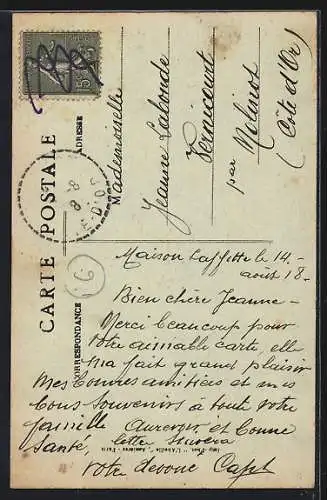 CARTE POSTALE
CORRESPONDANCE
ADRESSE
Mademoiselle
Jeanne
par Molinot
(Côte d'Or)
6
Maison Laffitte le 14-
août 18-
Bien chère Jeanne-
Merci beaucoup pour
votre aimable carte, elle
m'a fait grand plaisir
Mes bonnes amitiées et mes
bons souvenirs à toute votre
famille Auverger et bonne
santé, lettre suivera
votre devoué Capt